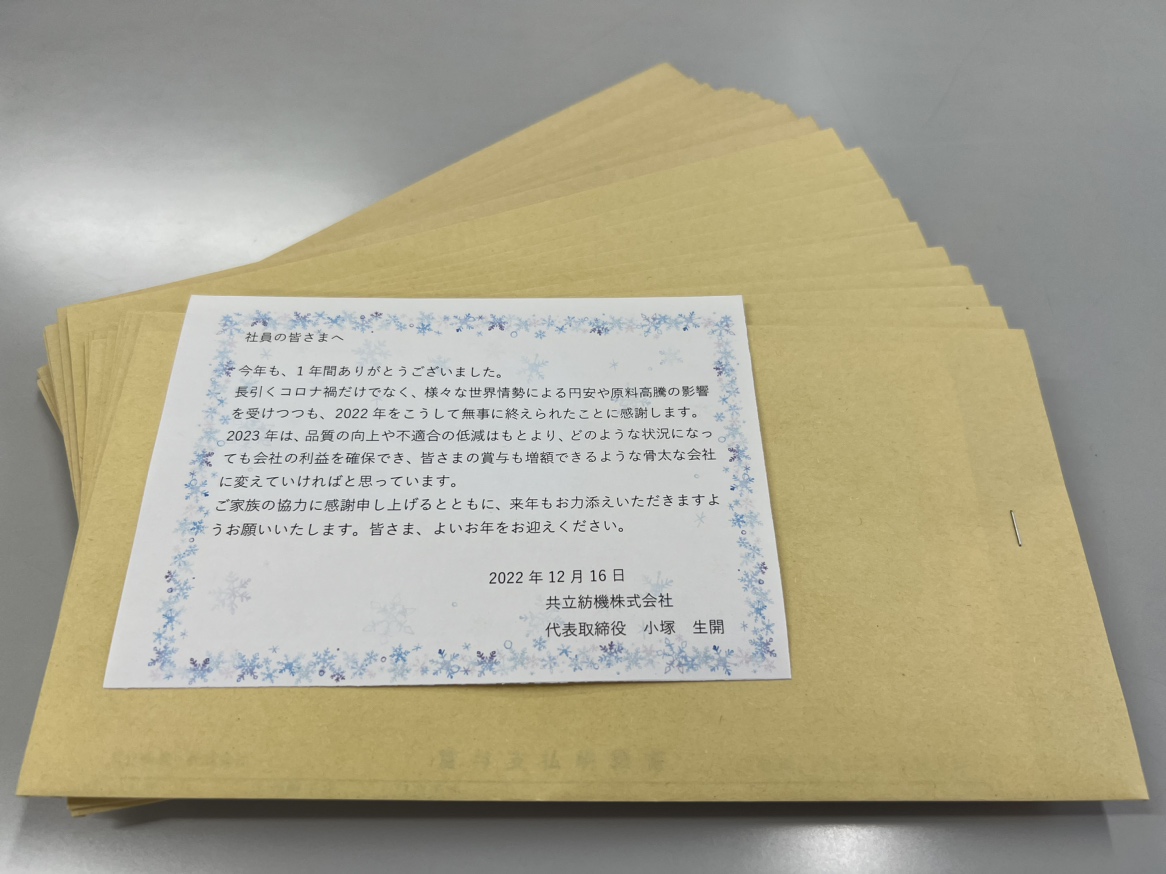 社員の皆さまへ
今年も、1年間ありがとうございました。
長引くコロナ禍だけでなく、様々な世界情勢による円安や原料高騰の影響
を受けつつも、2022年をこうして無事に終えられたことに感謝します。
2023年は、品質の向上や不適合の低減はもとより、どのような状況になっ
ても会社の利益を確保でき、皆さまの賞与も増額できるような骨太な会社
に変えていければと思っています。
ご家族の協力に感謝申し上げるとともに、来年もお力添えいただきますよ
うお願いいたします。皆さま、よいお年をお迎えください。
2022年12月16日
共立紡機株式会社
代表取締役　小塚　生開